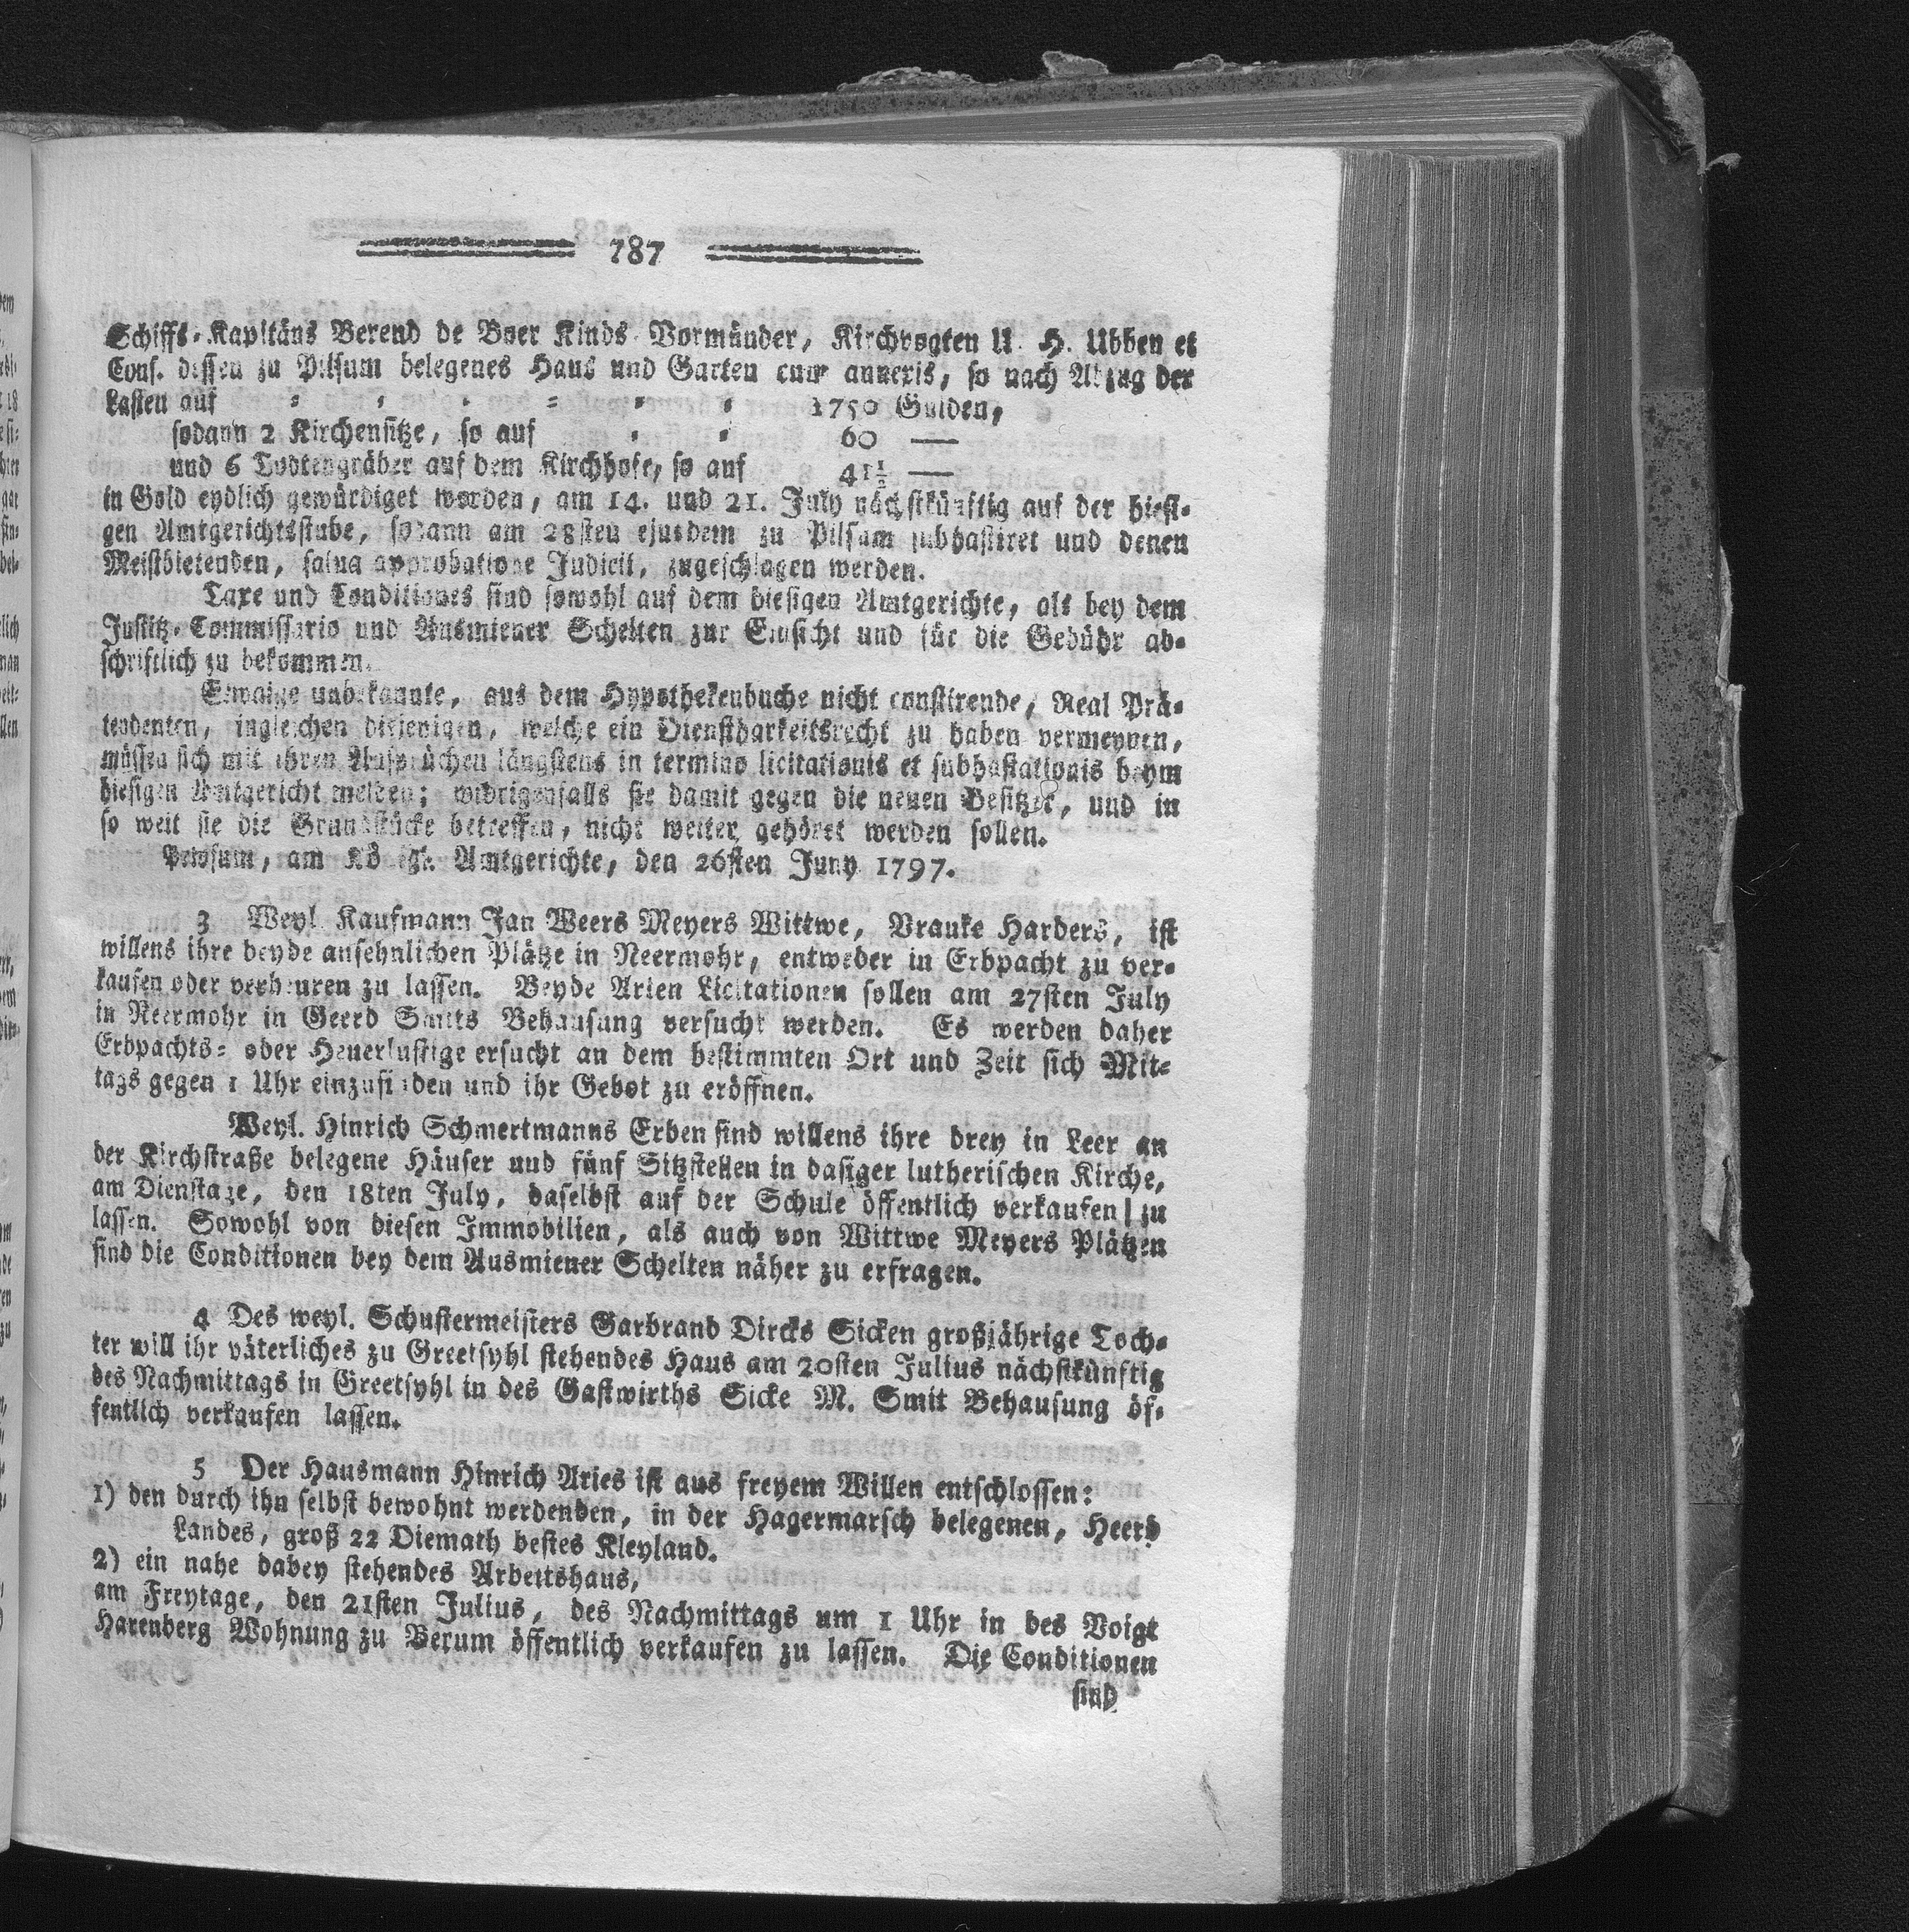 787
Schiffs-Kapitäns Berend de Boer Kinds Vormünder, Kirchvogten U. H. Ubben et
Cons. dessen zu Pilsum belegenes Haus und Garten cum annexis, so nach Abzug der
Lasten auf = = = = = = 1750 Gulden,
sodann 2 Kirchensitze, so auf = = 60 —
und 6 Todtengräber auf dem Kirchhofe, so auf 41½ —
in Gold eydlich gewürdiget worden, am 14. und 21. July nächstkünftig auf der hiesi-
gen Amtgerichtsstube, sodann am 28sten ejusdem zu Pilsum subhastiret und denen
Meistbietenden, salva approbatione Judicii, zugeschlagen werden.
Taxe und Conditiones sind sowohl auf dem hiesigen Amtgerichte, als bey dem
Justitz-Commissario und Ausmiener Schelten zur Einsicht und für die Gebühr ab-
schriftlich zu bekommen.
Etwaige unbekannte, aus dem Hypothekenbuche nicht constirende, Real Prä-
tendenten, ingleichen diejenigen, welche ein Dienstbarkeitsrecht zu haben vermeynen,
müssen sich mit ihren Ansprüchen längstens in termino licitationis et subhastationis beym
hiesigen Amtgericht melden; widrigenfalls sie damit gegen die neuen Besitzer, und in
so weit sie die Grundstücke betreffen, nicht weiter gehöret werden sollen.
Pewsum, am Königl. Amtgerichte, den 26sten Juny 1797.
3 Weyl. Kaufmann Jan Weers Meyers Wittwe, Vrauke Harders, ist
willens ihre beyde ansehnlichen Plätze in Neermohr, entweder in Erbpacht zu ver-
kaufen oder verheuren zu lassen. Beyde Arten Licitationen sollen am 27sten July
in Neermohr in Geerd Smits Behausung versucht werden. Es werden daher
Erbpachts= oder Heuerlustige ersucht an dem bestimmten Ort und Zeit sich Mit-
tags gegen 1 Uhr einzufinden und ihr Gebot zu eröffnen.
Weyl. Hinrich Schmertmanns Erben sind willens ihre drey in Leer an
der Kirchstraße belegene Häuser und fünf Sitzstellen in dasiger lutherischen Kirche,
am Dienstage, den 18ten July, daselbst auf der Schule öffentlich verkaufen zu
lassen. Sowohl von diesen Immobilien, als auch von Wittwe Meyers Plätzen
sind die Conditionen bey dem Ausmiener Schelten näher zu erfragen.
4 Des weyl. Schustermeisters Garbrand Dircks Sicken großjährige Toch-
ter will ihr väterliches zu Greetsyhl stehendes Haus am 20sten Julius nächstkünftig
des Nachmittags in Greetsyhl in des Gastwirths Sicke M. Smit Behausung öf-
fentlich verkaufen lassen.
5 Der Hausmann Hinrich Aries ist aus freyem Willen entschlossen:
1) den durch ihn selbst bewohnt werdenden, in der Hagermarsch belegenen, Heerd
Landes, groß 22 Diemath bestes Kleyland.
2) ein nahe dabey stehendes Arbeitshaus,
am Freytage, den 21sten Julius, des Nachmittags um 1 Uhr in des Voigt
Harenberg Wohnung zu Berum öffentlich verkaufen zu lassen. Die Conditionen
sind